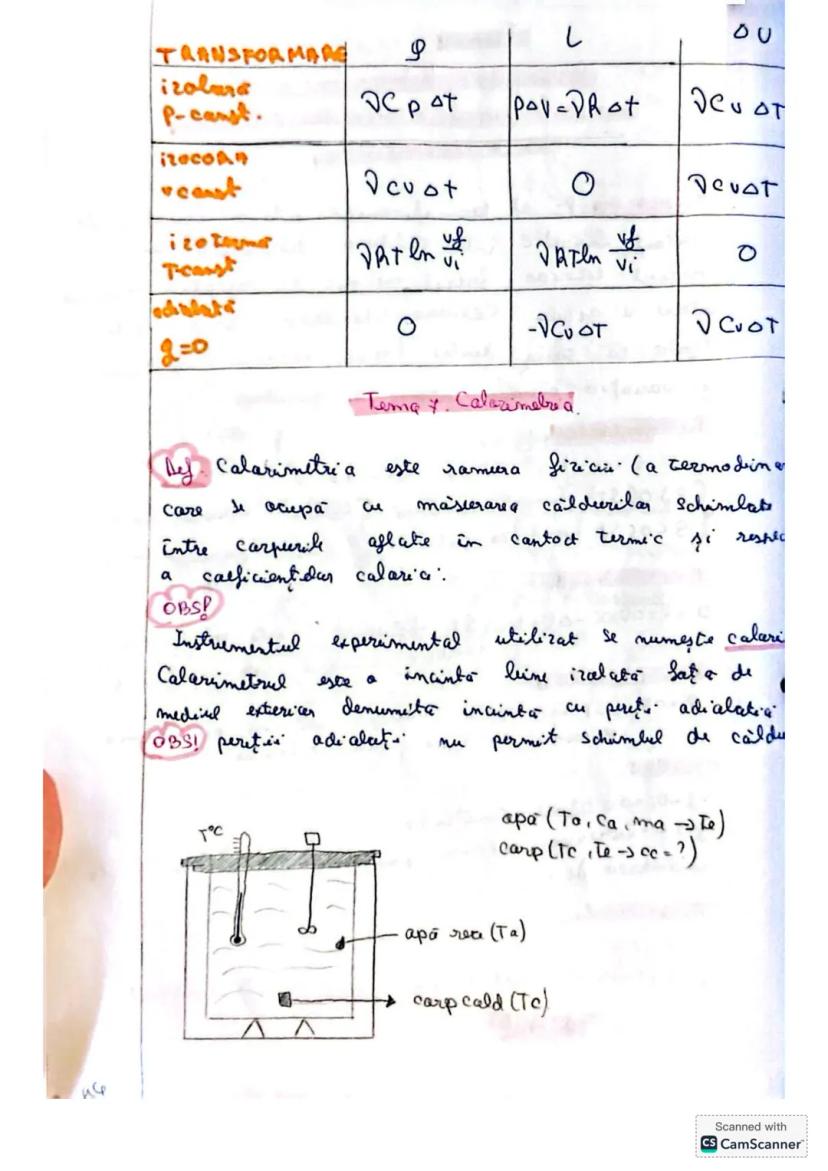 TRANSFORMARE Q L ΔU
izobară p-const. νCpΔt pΔV=νRΔt νCvΔT
izocoră v const νCvΔt 0 νCvΔT
izotermă T const νRT ln vf/vi νRT ln vf/vi 0
adiabată q=0 0 -νCvΔT νCvΔT
Tema 7. Calorimetria
Def. Calorimetria este ramura fizicii (a termodin
care se ocupă cu măsurarea căldurilor schimbate
între corpurile aflate în contact termic și respec
a coeficienților calorici.
OBS!
Instrumentul experimental utilizat se numește calori
Calorimetrul este o incintă bine izolată față de
mediul exterior denumită incintă cu pereți adiabatici
OBS! pereții adiabați nu permit schimbul de căldu
T°C
apă (Ta, ca, ma → Te)
corp (Tc, Te → cc = ?)
apă rece (Ta)
corp cald (Tc)
Scanned with
CS CamScanner